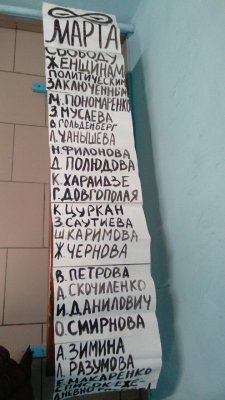 8
МАРТА
СВОБОДУ
ЖЕНЩИНАМ
ПОЛИТИЧЕСКИМ
ЗАКЛЮЧЕННЫМ
М. ПОНОМАРЕНКО
З. МУСАЕВА
В. ГОЛЬДЕНБЕРГ
Л. ЧАНЫШЕВА
Н. ФИЛОНОВА
Д. ПОЛЮДОВА
К. ХАРАИДЗЕ
Г. ДОВГОПОЛАЯ
К. ЦУРКАН
З. САУТИЕВА
Ш. КАРИМОВА
Ж. ЧЕРНОВА
В. ПЕТРОВА
А. СКОЧИЛЕНКО
И. ДАНИЛОВИЧ
О. СМИРНОВА
А. ЗИМИНА
Л. РАЗУМОВА
Е. МАКАРЕНКО
СПИСОК ЕЖЕ-
ДНЕВНО